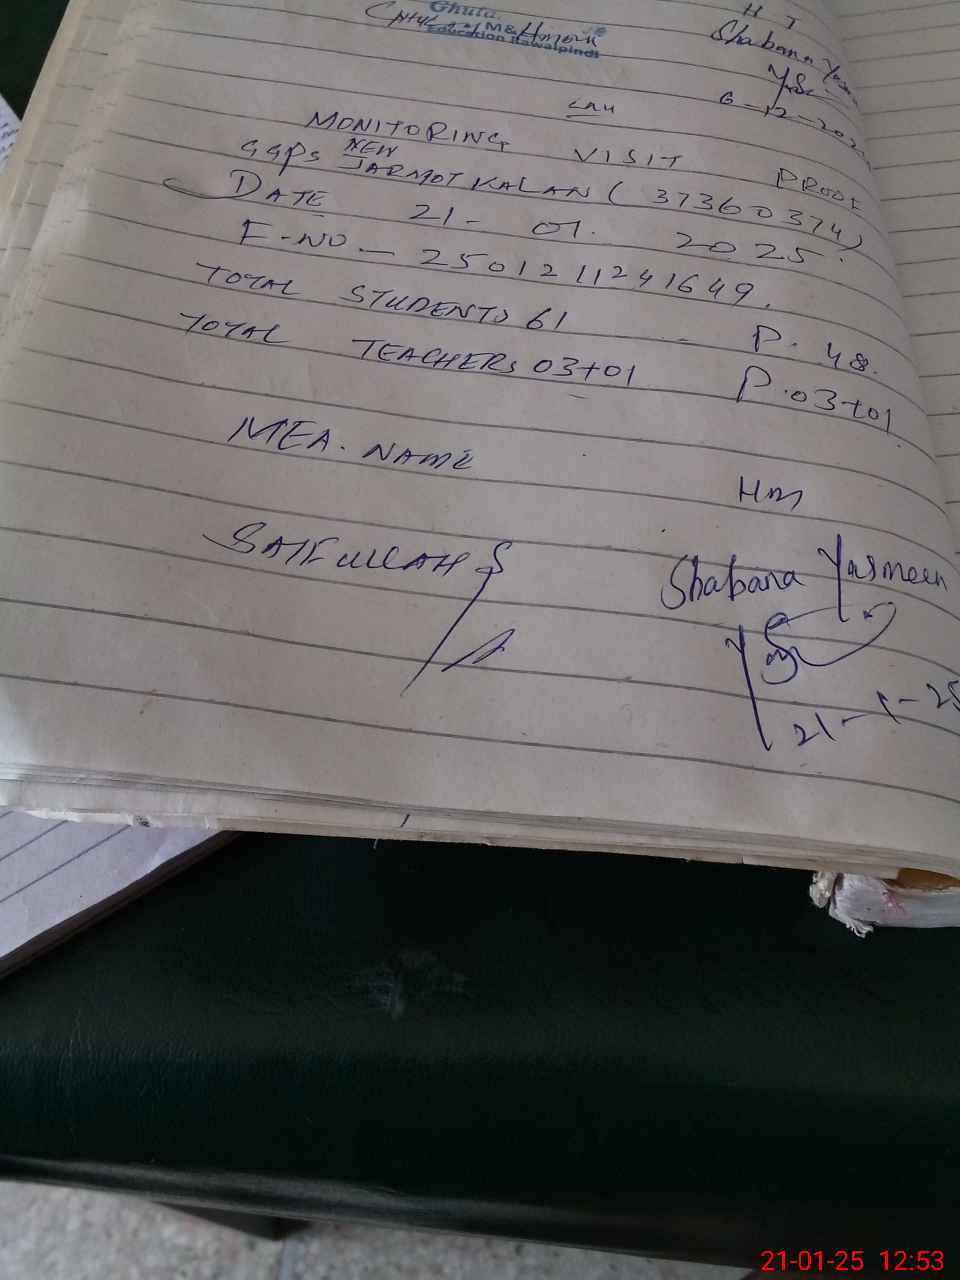 H T
Ghula.
M&
Education Rawalpindi
Shabana Yas
6-12-202
MONITORING VISIT PROOF
GGPS NEW JARMOT KALAN (37360374)
DATE 21-01.2025.
F-NO - 2501211241649.
TOTAL STUDENTS 61 P. 48.
TOTAL TEACHERS 03+01 P.03+01.
MEA. NAME
HM
SAIFULLAH
Shabana Yasmeen
21-1-25
21-01-25 12:53